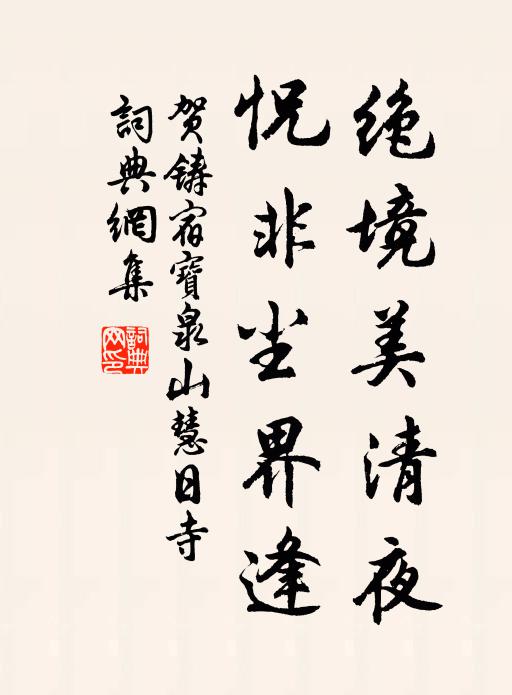 绝境美清夜
怳非尘界逢
贺铸宿寳泉山慧日寺
詞典網集
詞典
网印